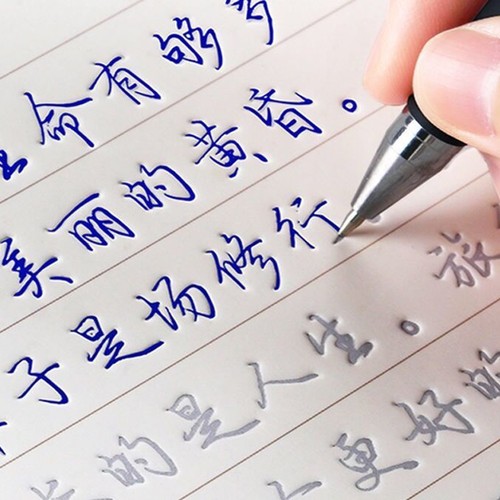 命有够多
美丽的黄昏。
子是场修行。
的是人生。旅
更好的